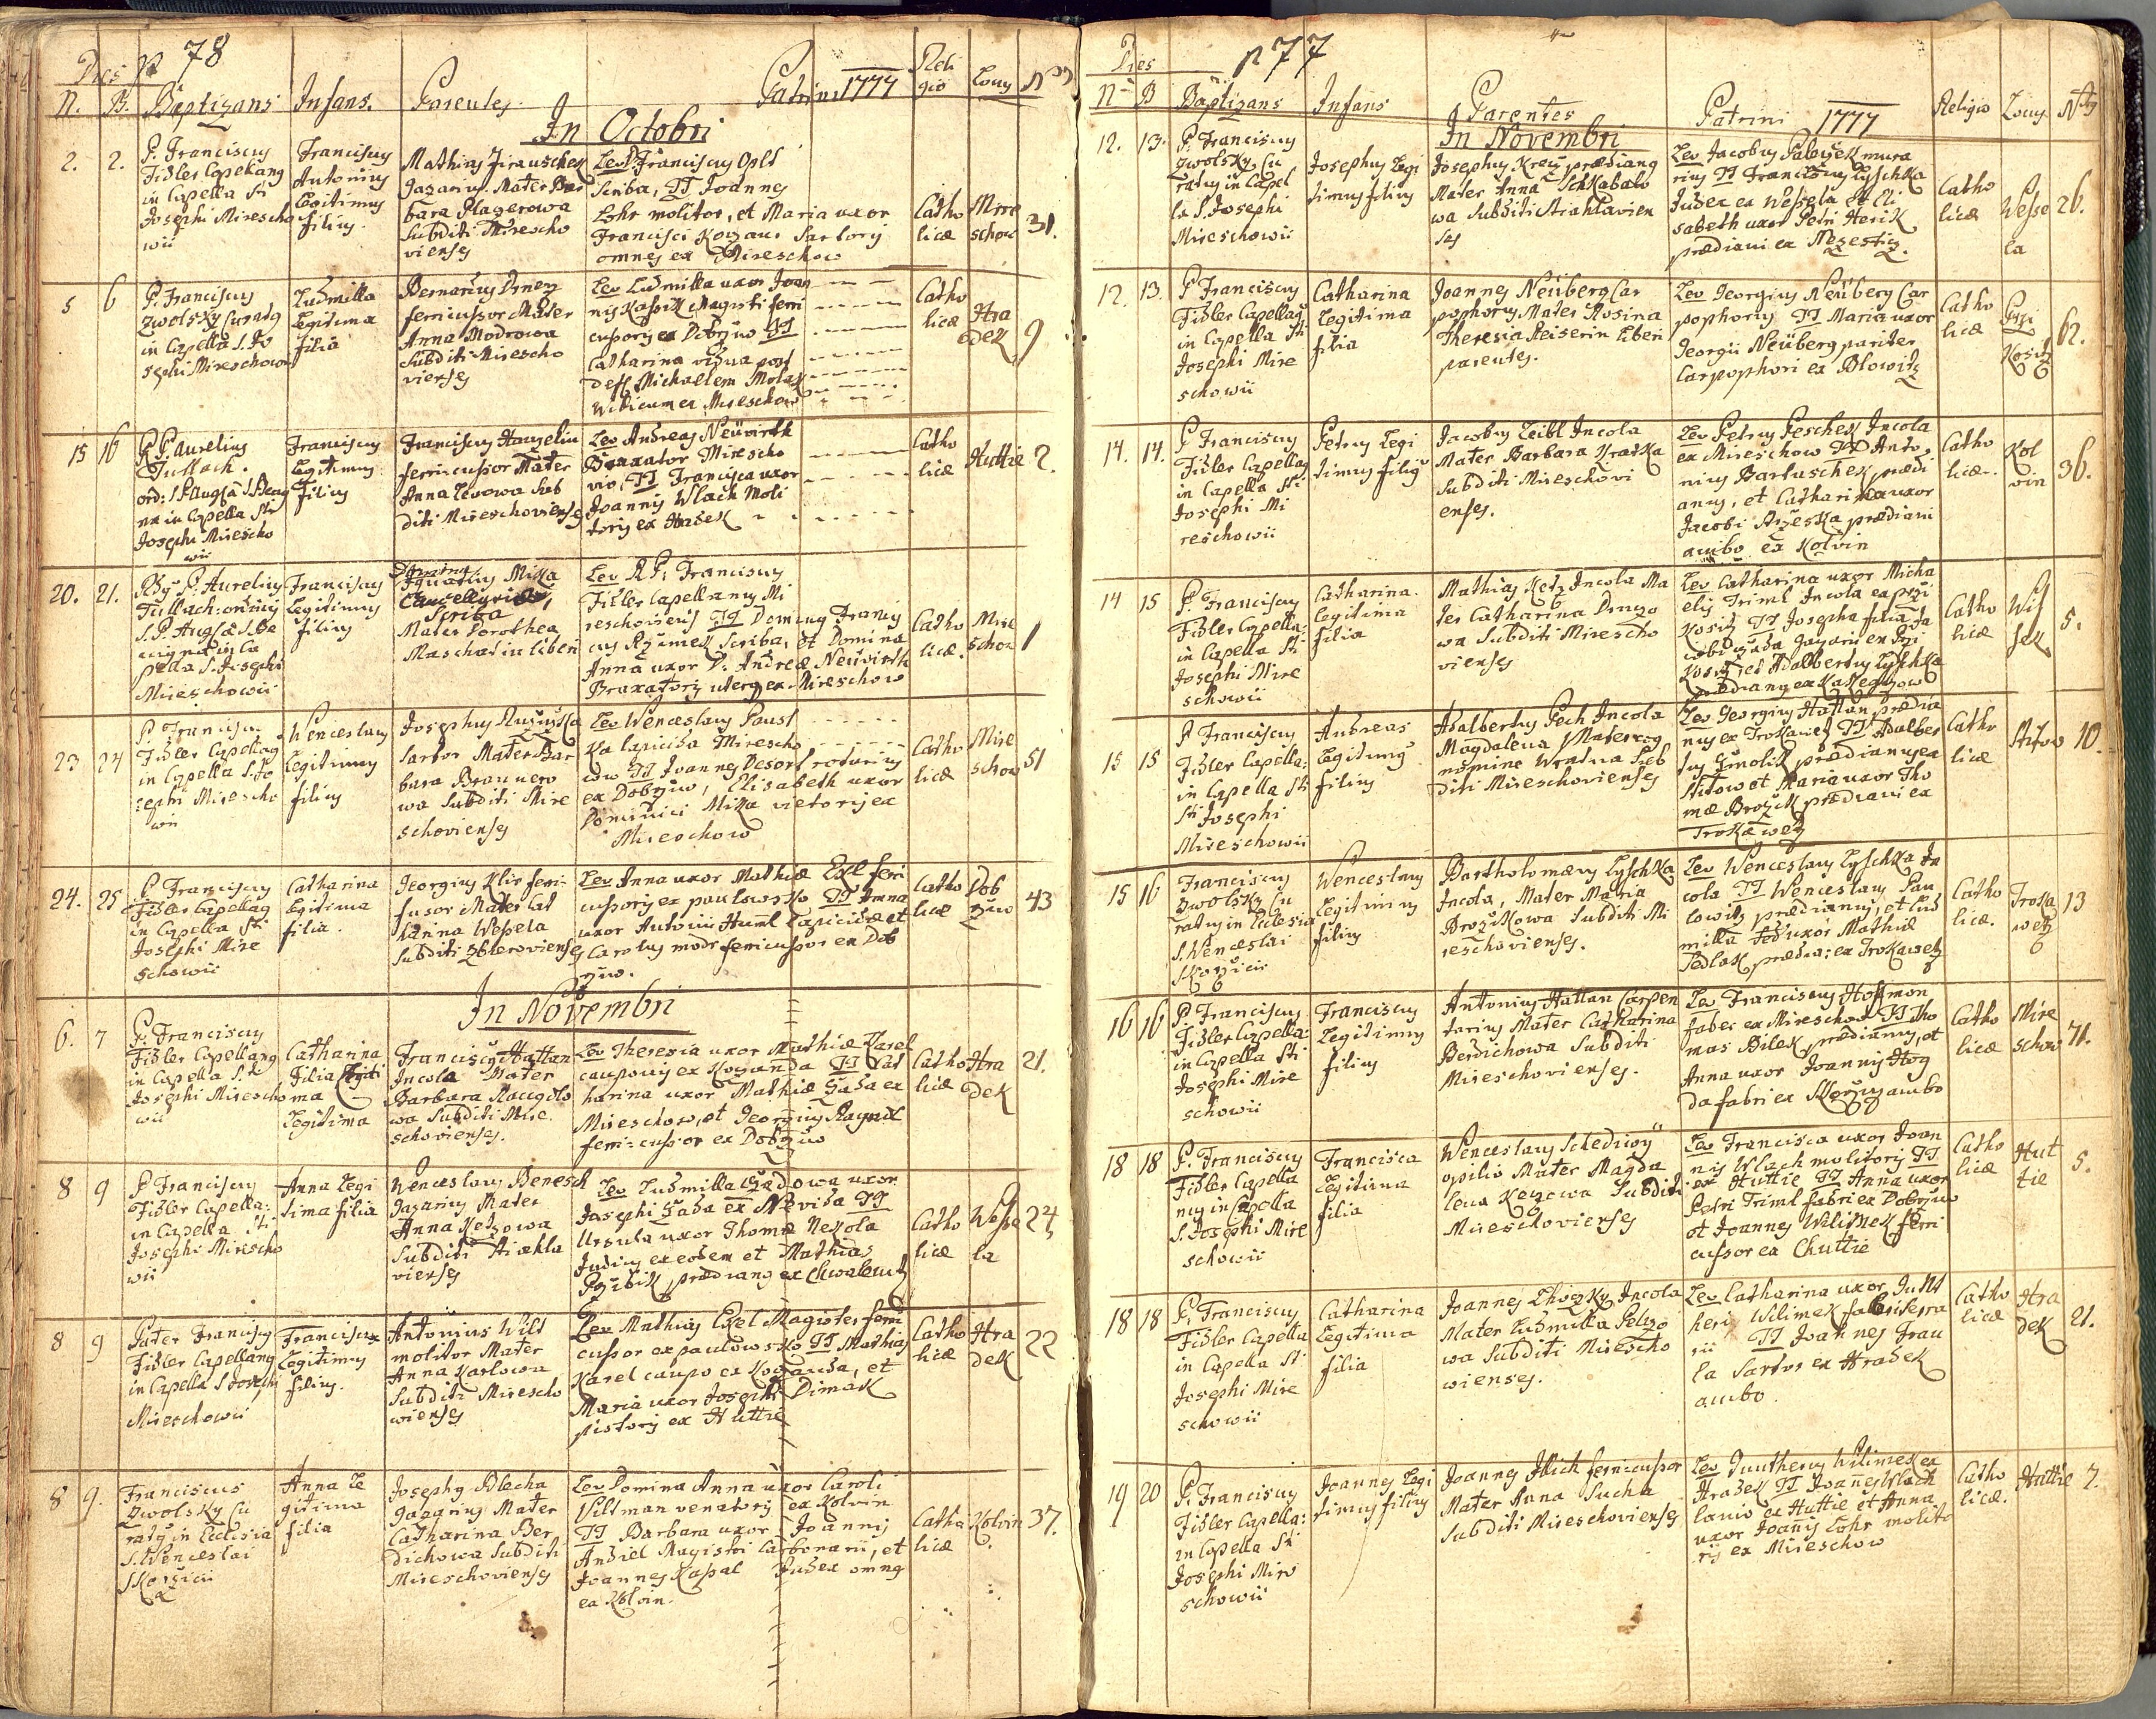 78
Dies
Reli
N. B. Baptizans Infans. Parentes. Patrini 1777 gio Locus Nrus
In Octobri
2. 2. P. Franciscus
Fidler Capellang
in Capella Sti
Josephi Mirescho
wii
Franciscus
Antonius
Legitimus
filius.
Mathias Jirauschek
Gazarius Mater Bar
bara Plagerowa
Subditi Mirescho
vienses
Lev. Franciscus Oplt
Scriba, TT Joannes
Lohr molitor, et Maria uxor
Francisci Kozaur Sartoris
omnes ex Mireschow
Catho
licæ
Mire
schow
31.
5 6 P. Franciscus
Zwolsky Curatg
in Capella S. Jo
sephi Mireschowii
Ludmilla
Legitima
filia
Bernardus Drnez
ferricussor Mater
Anna Modrowa
Subditi Mirescho
vienses
Lev Ludmilla uxor Joan
nis Kassik Magistri ferri
cussoris ex Dobrziw TT
Catharina vidua post
Def. Michaelem Molas
Widicum ex Mireschow
Catho
licæ
Hra
dek
9
15 16 R. P. Aurelius
Tullach.
ord: S P. Aug(æ) S. Beng
na in Capella Sti
Josephi Mirescho
wii
Franciscus
Legitimus
filius
Franciscus Hanzelin
ferricussor Mater
Anna Levowa Sub
diti Mireschovienses
Lev Andreas Neuwirth
Braxator Mirescho
vio, TT Francisca uxor
Joannis Wlach Moli
toris ex Hradek
Catho
licæ
Huttie
2.
20. 21. Rdg P. Aurelius
Tullach: ordinis
S. P. Aug(æ) S. Be
nigna in Ca
pella S. Josephi
Mireschowii
Franciscus
Legitimus
filius
Dominus
Ignatius Mika
Cancellariæ
Scriba
Mater Dorothea
Maschatin liberi
Lev R. P. Franciscus
Fidler Capellanus Mi
reschoviensis TT Dominus Francis
cus Rzimek Scriba, et Domina
Anna uxor D. Andreæ Neuwirth
Braxatoris uterq ex Mireschow
Catho
licæ.
Mire
schow
1
23 24 P. Franciscus
Fidler Capellag
in Capella S. Jo
sephi Mirescho
wii
Wenceslaus
Legitimus
filius
Josephus Ruziczka
Sartor Mater Bar
bara Braunero
wa Subditi Mire
schovienses
Lev Wenceslaus Paust
ka lapicida Mirescho
wiw TT Joannes Desort rotarius
ex Dobrziw, Elisabeth uxor
Dominici Mika vietoris ex
Mireschow
Catho
licæ
Mire
schow
51
24. 25 P. Franciscus
Fidler Capellag
in Capella Sti
Josephi Mire
schowii
Catharina
legitima
filia.
Georgius Klir ferri-
fusor Mater Cat
harina Wessela
Subditi Zbirovienses
Lev Anna uxor Mathiæ Exl ferri
cussoris ex pawlowsko TT Anna
uxor Antonii Huml Lapicidæ et
Carolus Modr ferricussor ex Dob
rziw.
Catho
licæ
Dob
rziw
43
In Novembri
6. 7 P. Franciscus
Fidler Capellang
in Capella S. ti
Josephi Mirescho
wii
Catharina
Filia Legiti
ma
Legitima
Franciscus Hattan
Incola Mater
Barbara Raczoto
wa Subditi Mire
schovienses.
Lev Theresia uxor Mathiæ Karel
cauponis ex Kozanda TT Cat
harina uxor Mathiæ Gada ex
Mireschow, et Georgius Raynik
ferri=cussor ex Dobrziw
Catho
licæ
Hra
dek
21.
8 9 P. Franciscus
Fidler Capella:
in Capella Sti
Josephi Mirescho
wii
Anna Legi
tima filia
Wenceslaus Benesch
Gazarius Mater
Anna Ketzowa
Subditi Stiakla
vienses
Lev Ludmilla Gadowa uxor
Josephi Gada ex Nevida TT
Ursula uxor Thomæ Nekola
Judicis ex eodem et Mathias
Przibik prædianus ex Chwalenitz
Catho
licæ
Wesse
la
24
8 9 Pater Franciscus
Fidler Capellang
in Capella S Josephi
Mireschowii
Franciscus
Legitimus
filius.
Antonius Wilt
molitor Mater
Anna Karlowa
Subditi Mirescho
wienses
Lev Mathias Exel Magister ferri
cussor ex pawlowsko TT Mathias
Karel caupo ex Kozanda, et
Maria uxor Josephi Dimak
pistoris ex Huttie
Catho
licæ
Hra
dek
22
8 9. Franciscus
Zwolsky Cu
ratus in Ecclesia
S. Wenceslai
Skorzicii
Anna Le
gitima
filia
Josephg Blecha
Gazarius Mater
Catharina Ber
dichowa Subditi
Mireschovienses
Lev Domina Anna uxor Caroli
Viltman venatoris ex Kolvin
TT Barbara uxor Joannis
Andiel Magistri Carbonarii, et
Joannes Kassal Judex omnes
ex Kolvin.
Catho
licæ
Kolvin
37.
77
Dies
N B Baptizans Infans Parentes Patrini 1777 Religio Locus Nrus
In Novembri
12. 13. P. Franciscus
Zwolsky Cu
ratus in Capel
la S. Josephi
Mireschowii
Josephus Legi
timus filius
Josephus Kreis prædiang
Mater Anna Schkabalo
wa Subditi Stiahlavien
ses
Lev Jacobus Paleczek mura
rius TT Franciscus Lyschka
Judex ex Wessela et Eli
sabeth uxor Petri Herik
prædiani ex Nezestitz.
Catho
licæ
Wesse
la
26.
12. 13. P Franciscus
Fidler Capellag
in Capella Sti
Josephi Mire
schowii
Catharina
Legitima
filia
Joannes Neüberg Car
pophorus Mater Rosina
Theresia Reiserin liberi
parentes.
Lev Georgius Neüberg Car
pophorus TT Maria uxor
Georgii Neüberg pariter
Carpophori ex Blowitz
Catho
licæ
Przi
Kositz
62.
14. 14. P Franciscus
Fidler Capellag
in Capella Sti
Josephi Mi
reschowii
Petrus Legi
timus filius
Jacobus Leibl Incola
Mater Barbara Kratka
Subditi Mireschovi
enses.
Lev Petrus Peschek Incola
ex Mireschow TT Anto
nius Bartuschek prædi
anus, et Catharina uxor
Jacobi Rzeska prædiani
ambo ex Kolvin
Catho
licæ.
Kol
vin
36.
14 15 P. Franciscus
Fidler Capella:
in Capella Sti
Josephi Mire
schowii
Catharina.
legitima
filia
Mathias Ketz Incola Ma
ter Catharina Drnzo
wa Subditi Mirescho
vienses
Lev Catharina uxor Micha
elis Triml Incola ex Przi
kositz TT Josepha filia Ja
cobi Gada Gazari ex Przi
Kositz, et Adalbertus Lyschka
prædianus ex Kakegtzow
Catho
licæ
Wis
sek
5.
15 15 P Franciscus
Fidler Capella:
in Capella Sti
Sti Josephi
Mireschowii
Andreas
Legitimus
filius
Adalbertus Pech Incola
Magdalena Mater cog
nomine Wentua Sub
diti Mireschovienses
Lev Georgius Hattan prædia
nus ex Trokawetz TT Adalber
tus Smolik prædianus ex
Stitow et Maria uxor Tho
mæ Brozik prædiani ex
Trokawetz
Catho
licæ
Stitow
10.
15 16 Franciscus
Zwolsky Cu
ratus in Ecclesia
S. Wenceslai
Skorzicii
Wenceslaus
Legitimus
filius
Bartholomæus Lyschka
Incola, Mater Maria
Brozikowa Subditi Mi
reschovienses.
Lev Wenceslaus Lyschka In
cola TT Wenceslaus Pau
lowitz prædianus, et Lud
milla uxor Mathiæ
Sedlak prædia: ex Trokawetz
Catho
licæ.
Troka
wetz
13
16 16 P. Franciscus
Fidler Capella:
in Capella Sti
Josephi Mire
schowii
Franciscus
Legitimus
filius
Antonius Hattan Carpen
tarius Mater Catharina
Berdichowa Subditi
Mireschovienses.
Lev Franciscus Hoffmon
faber ex Mireschow TT Tho
mas Bilek prædianus, et
Anna uxor Joannis Hog
da fabri ex Skorziz ambo
Catho
licæ
Mire
schow
71.
18 18 P. Franciscus
Fidler Capella
nus in Capella
S. Josephi Mire
schowii
Francisca
Legitima
filia
Wenceslaus Schediwy
opilio Mater Magda
lena Kezowa Subditi
Mireschovienses
Lev Francisca uxor Joan
nis Wlach molitoris TT
ex Huttie TT Anna uxor
Petri Triml fabri ex Dobrziw
et Joannes Wilimek ferri
cussor ex Chuttie
Catho
licæ
Hut
tie
5.
18 18 P. Franciscus
Fidler Capella
in Capella Sti
Josephi Mire
schowii
Catharina
Legitima
filia
Joannes Lhoczky Incola
Mater Ludmilla Peltzo
wa Subditi Mirescho
wienses.
Lev Catharina uxor Juttt
heri Wilimek
rii TT Joannes Frau
la Sartor ex Hradek
ambo.
Catho
licæ
Hra
dek
21.
19 20 P. Franciscus
Fidler Capella:
in Capella Sti
Josephi Mire
schowii
Joannes Legi
timus filius
Joannes Illich ferricussor
Mater Anna Sucha
Subditi Mireschovienses
Lev Juutherus Wilimek ex
Hradek TT Joannes Wlach
lanio ex Huttie et Anna
uxor Joannis Lohr molito
ris ex Mireschow
Catho
licæ.
Huttie
7.